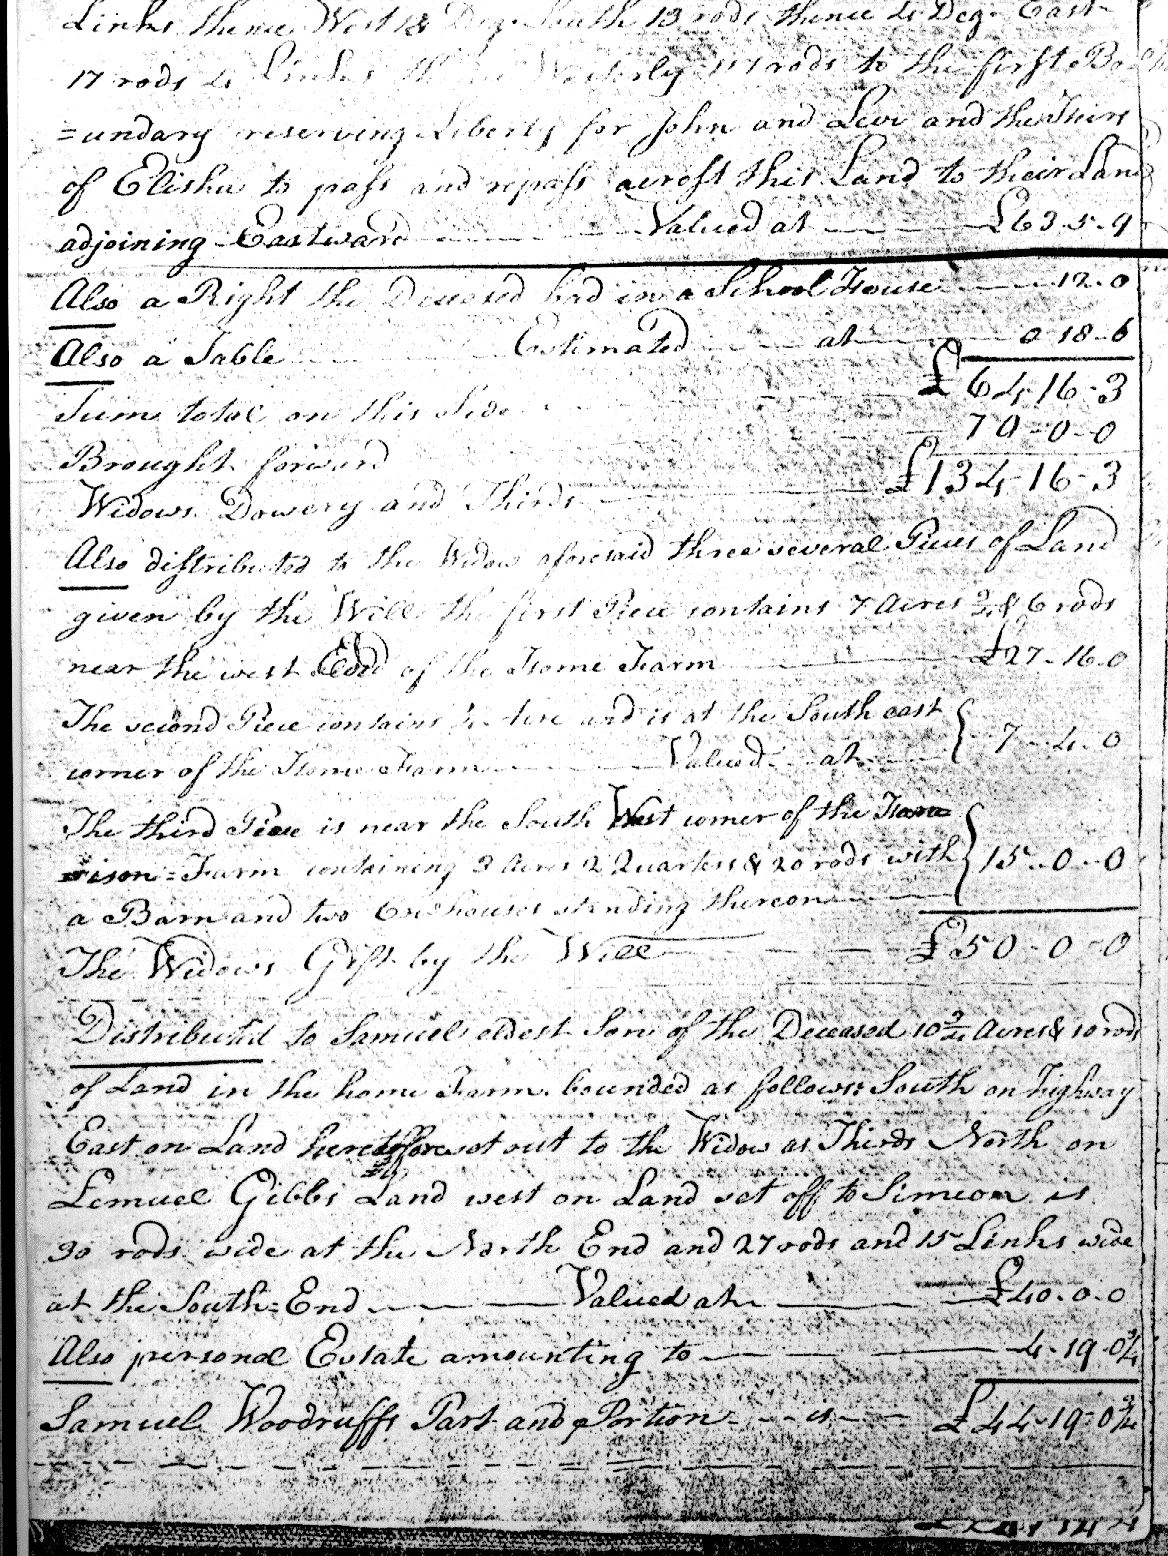 Links thence West 18 Deg. South 13 rods thence 4 Deg. East
17 rods 4 Links thence Westerly rods to the first Bo
=undary reserving Liberty for John and Levi and the Heirs
of Elisha to pass and repass acrost this Land to their Land
adjoining Eastward Valued at £63-5-9
Also a Right the Deceased had in a School House 12-0
Also a Table Estimated at 0 18-6
Sum total on this Side £64-16-3
Brought forward 70-0-0
Widows Dowery and Thirds £134-16-3
Also distributed to the Widow aforesaid three several Pieces of Land
given by the Will the first Piece contains 7 Acres 3/4 & 6 rods
near the west End of the Home Farm £27-16-0
The second Piece contains Acre and is at the South east
corner of the Home Farm Valued at 7-4-0
The third Piece is near the South West corner of the Harra
=ison=Farm containing 3 Acres 2 Quarters & 20 rods with
a Barn and two houses standing thereon 15-0-0
The Widows Gift by the Will £50-0-0
Distributed to Samuel eldest Son of the Deceased 10 3/4 Acres & 10 rods
of Land in the home Farm bounded as follows: South on Highway
East on Land heretofore set out to the Widow as Thirds North on
Lemuel Gibbs Land west on Land set off to Simeon is
30 rods wide at the North End and 27 rods and 15 Links wide
at the South=End Valued at £40-0-0
Also personal Estate amounting to 4-19-0 3/4
Samuel Woodruffs Part and Portion is £44-19-0 3/4